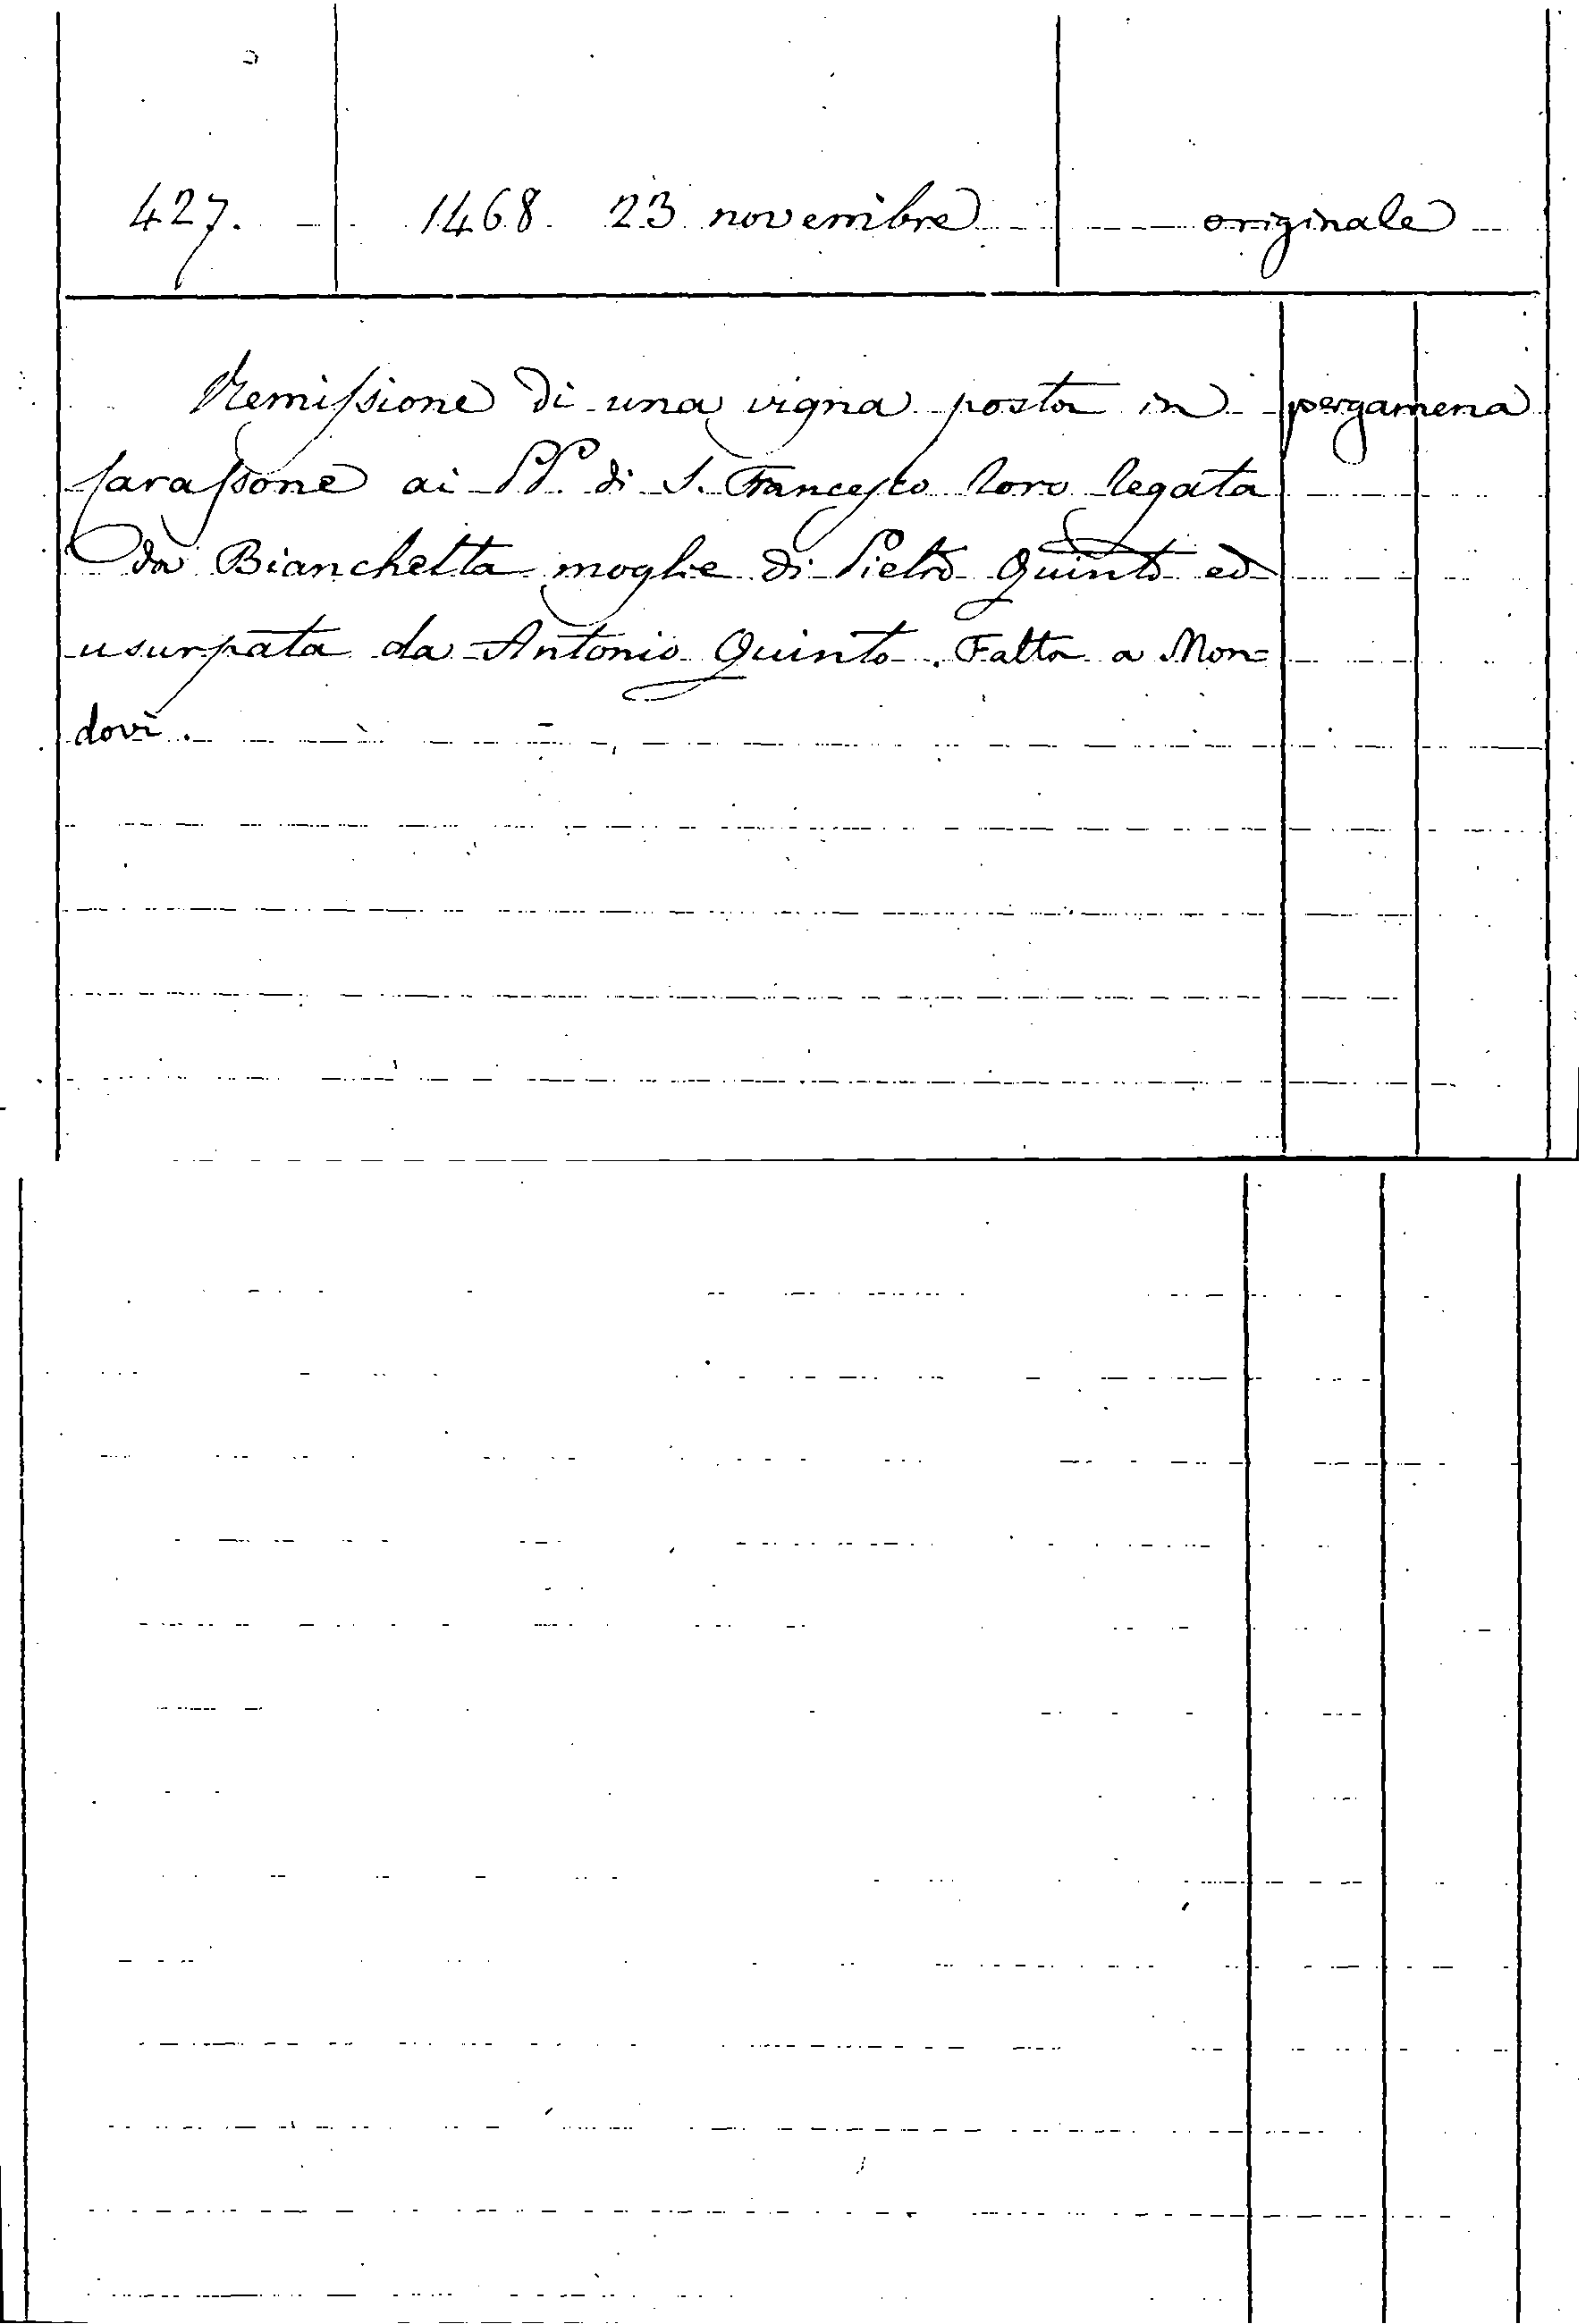 427. 1468. 23 novembre originale
Remissione di una vigna posta in pergamena
sarassone ai PP. di S. Francesco loro legata
da Bianchetta moglie di Pietro Quinto ed
usurpata da Antonio Quinto. Fatta a Mon=
dovì.